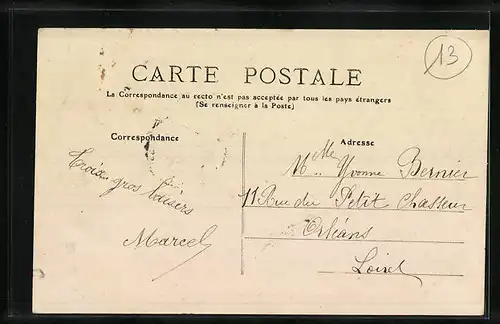 13
CARTE POSTALE
La Correspondance au recto n'est pas acceptée par tous les pays étrangers
(Se renseigner à la Poste)
Correspondance
Trois gros baisers
Marcel
Adresse
Mlle Yvonne Bernier
11 Rue du Petit Chasseur
Orléans
Loiret